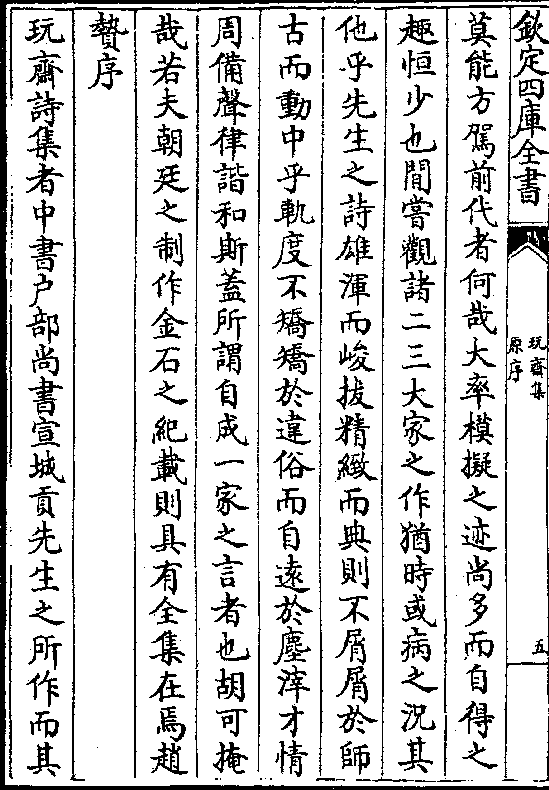 欽定四庫全書
玩齋集
原序
五
莫能方駕前代者何哉大率模擬之迹尚多而自得之
趣恒少也間嘗觀諸二三大家之作猶時或病之况其
他乎先生之詩雄渾而峻拔精緻而典則不屑屑於師
古而動中乎軌度不矯矯於違俗而自遠於塵滓才情
周備聲律諧和斯蓋所謂自成一家之言者也胡可掩
哉若夫朝廷之制作金石之紀載則具有全集在焉趙
贄序
玩齋詩集者中書户部尚書宣城貢先生之所作而其